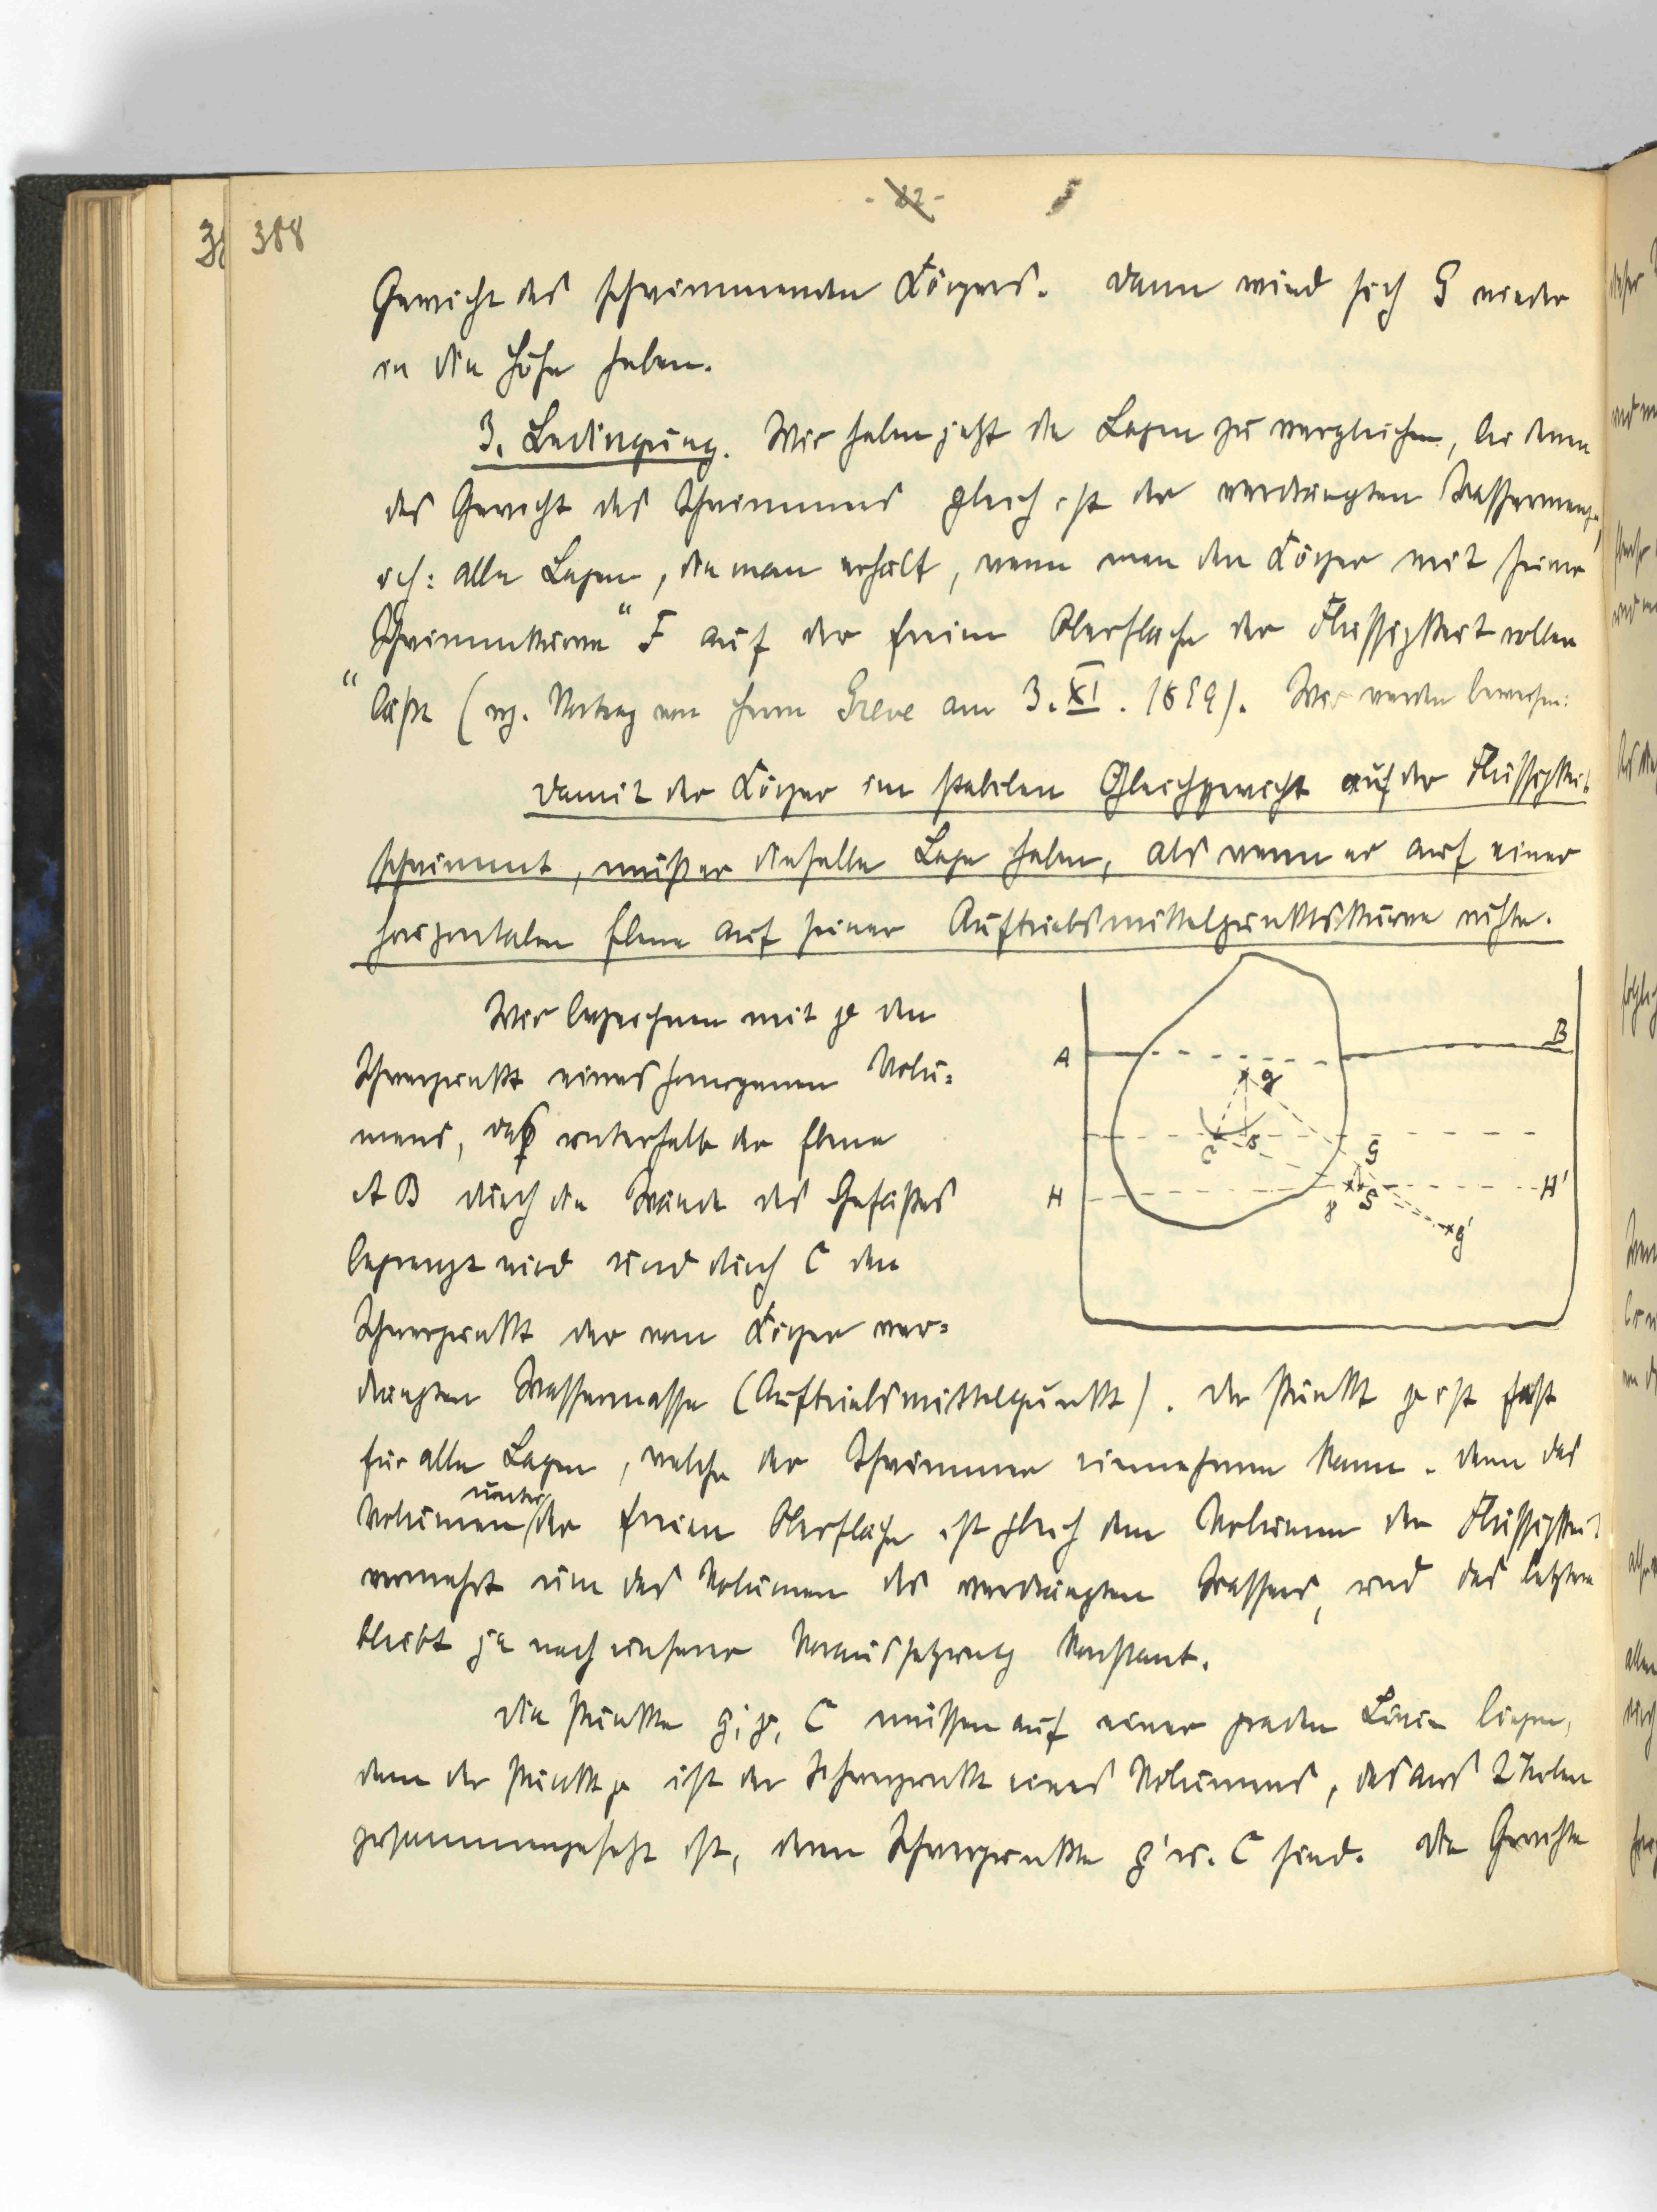 388
- 22 -
Gewicht des schwimmenden Körpers. Dann wird sich G wieder
in die Höhe heben.
3. Bedingung. Wir haben jetzt die Lagen zu vergleichen, bei denen
das Gewicht des Schwimmers gleich ist der verdrängten Wassermenge,
d. h: alle Lagen, die man erhält, wenn man den Körper mit seiner
„Schwimmkurve“ F auf der freien Oberfläche der Flüssigkeit rollen
läßt (vgl. Vortrag von Herrn Greve am 3. XI. 1899). Wir werden beweisen:
Damit der Körper im stabilen Gleichgewicht auf der Flüssigkeit
schwimmt, muß er dieselbe Lage haben, als wenn er auf einer
horizontalen Ebene auf seiner Auftriebsmittelpunktskurve ruhte.
Wir bezeichnen mit γ den
Schwerpunkt eines homogenen Volu=
mens, das unterhalb der Ebene
AB durch die Wände des Gefäßes
begrenzt wird und durch C den
Schwerpunkt der vom Körper ver=
drängten Wassermasse (Auftriebsmittelpunkt). Der Punkt γ ist fest
für alle Lagen, welche der Schwimmer einnehmen kann. Denn das
Volumen unter der freien Oberfläche ist gleich dem Volumen der Flüssigkeit
vermehrt um das Volumen des verdrängten Wassers, und das letztere
bleibt ja nach unserer Voraussetzung konstant.
Die Punkte g', γ, C müssen auf einer graden Linie liegen,
denn der Punkt γ ist der Schwerpunkt eines Volumens, das aus 2 Teilen
zusammengesetzt ist, deren Schwerpunkte g' u. C sind. Die Gewichte
A
B
g
C
s
G
H
H'
γ
S
g'